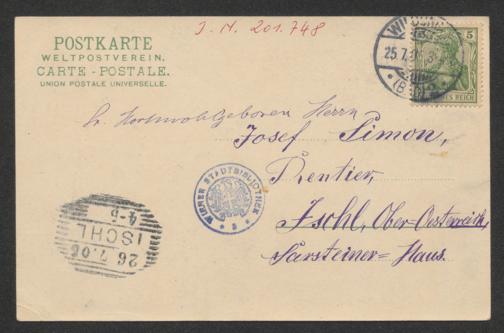 J. N. 201.748
POSTKARTE
WELTPOSTVEREIN.
CARTE - POSTALE.
UNION POSTALE UNIVERSELLE.
25.7.
5
Sr. Hochwohlgeboren Herrn
Josef Simon,
Rentier,
Ischl, Ober-Oesterreich,
Sarsteiner-Haus.
WIENER STADTBIBLIOTHEK
26.7.06
ISCHL
4-5